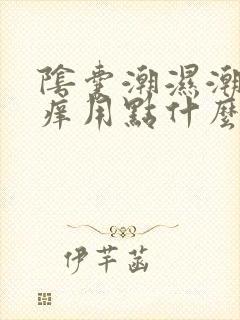 陰囊潮濕潮
癢用點什麼
伊芊菡